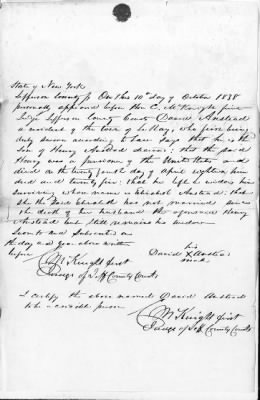 State of New York
Jefferson County ss On this 10th day of October 1838
personally appeared before Hon C. McKnight first
Judge Jefferson County Courts David Austead
a resident of the town of LeRay, who first being
duly sworn according to law says that he is the
Son of Henry Austead deceased: that the said
Henry was a pensioner of the United States and
died on the twenty fourth day of april eighteen hun
dred and twenty five; that he left a widow him
surviving whose name is Elizabeth Austead: that
She the said Elizabeth has not married since
the death of her husband the aforesaid Henry
Austead but still remains his widow
Sworn to and Subscribed on
the day and year above written
before
his
David X Austead
mark
McKnight first
Judge of Jeff County Courts
I certify the above named David Austead
to be a credible person
McKnight first
Judge of Jeff County Courts